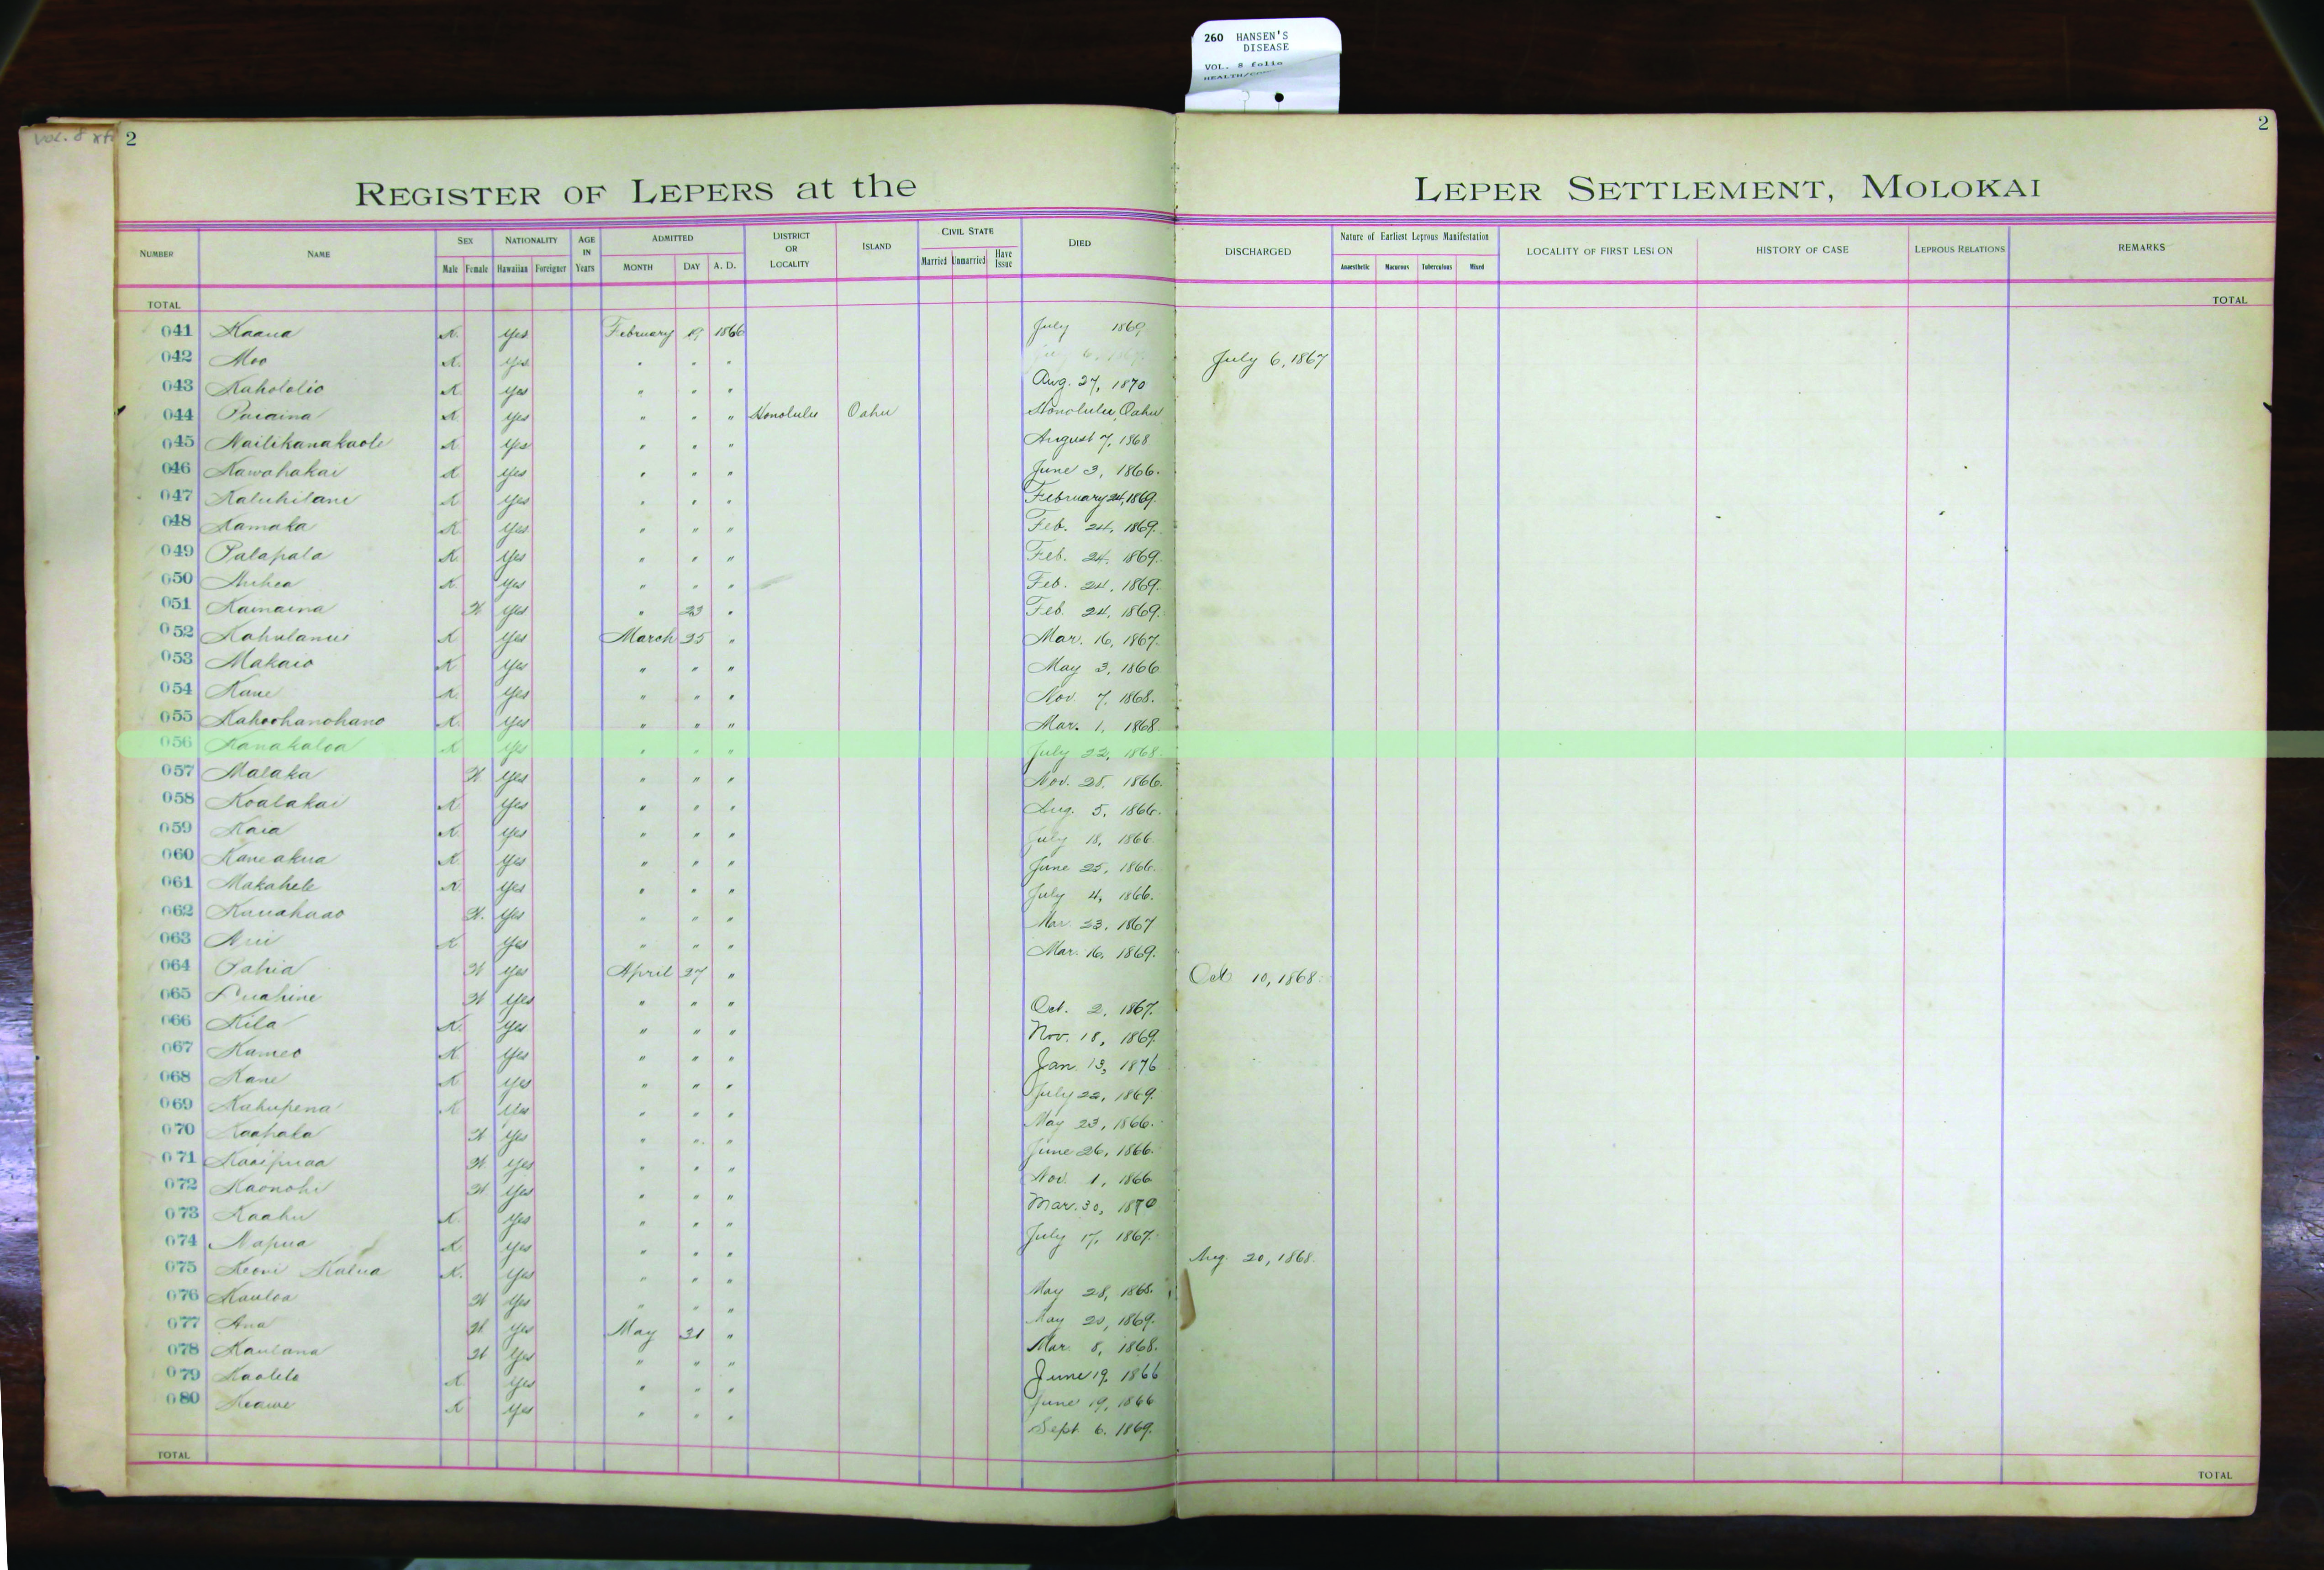 260 HANSEN'S
DISEASE
VOL. 8 folio
Vol. 8
2
2
REGISTER OF LEPERS at the LEPER SETTLEMENT, MOLOKAI
NUMBER NAME SEX NATIONALITY AGE IN Years ADMITTED DISTRICT OR LOCALITY ISLAND CIVIL STATE DIED DISCHARGED Nature of Earliest Leprous Manifestation LOCALITY OF FIRST LESION HISTORY OF CASE LEPROUS RELATIONS REMARKS
Male Female Hawaiian Foreigner MONTH DAY A. D. Married Unmarried Have Issue Anaesthetic Macurous Tuberculous Mixed
TOTAL TOTAL
041 Kaaua K. Yes February 19 1866 July 1869
042 Moo K. Yes " " " July 6, 1867
043 Kahololio K Yes " " " Aug. 27, 1870
044 K Yes " " " Honolulu Oahu Honolulu, Oahu
045 Nailikanakaole K Yes " " " August 7, 1868
046 Kawahakai K Yes " " " June 3, 1866.
047 Kaluhilani K Yes " " " February 24, 1869.
048 Kamaka K Yes " " " Feb. 24, 1869.
049 Palapala K. Yes " " " Feb. 24, 1869.
050 K. Yes " " " Feb. 24, 1869.
051 Kamaina W Yes " 23 " Feb. 24, 1869.
052 K Yes March 25 " Mar. 16, 1867.
053 Makaio K Yes " " " May 3, 1866
054 Kane K. Yes " " " Nov. 7, 1868.
055 Kahoohanohano K. Yes " " " Mar. 1, 1868
056 Kanakaloa K Yes " " " July 22, 1868.
057 Malaka W Yes " " " Nov. 28, 1866.
058 Koalakai K Yes " " " Aug. 5, 1866.
059 Kaia K. Yes " " " July 18, 1866.
060 Kaneakua K Yes " " " June 25, 1866.
061 Makahele K. Yes " " " July 4, 1866.
062 Kauahaao W. Yes " " " Mar. 23, 1867
063 K Yes " " " Mar. 16, 1869.
064 Pahia W Yes April 27 " Oct 10, 1868.
065 Luahine W Yes " " " Oct. 2, 1867.
066 Kila K. Yes " " " Nov. 18, 1869.
067 Kameo K Yes " " " Jan. 13, 1876
068 Kane K Yes " " " July 22, 1869.
069 Kahupena K Yes " " " May 23, 1866.
070 Kaahala W Yes " " " June 26, 1866.
071 Kaaipuaa W. Yes " " " Nov. 1, 1866
072 Kaonohi W Yes " " " Mar. 30, 1870
073 Kaahu K. Yes " " " July 17, 1867.
074 Napua K Yes " " " Aug. 20, 1868.
075 Keoni Kalua K. Yes " " " May 28, 1868.
076 Kauloa W Yes " " " May 20, 1869.
077 Ana W. Yes May 31 " Mar. 8, 1868.
078 Kaulana W Yes " " " June 19, 1866
079 Kaolelo K Yes " " " June 19, 1866
080 Keawe K Yes " " " Sept. 6, 1869.
TOTAL TOTAL